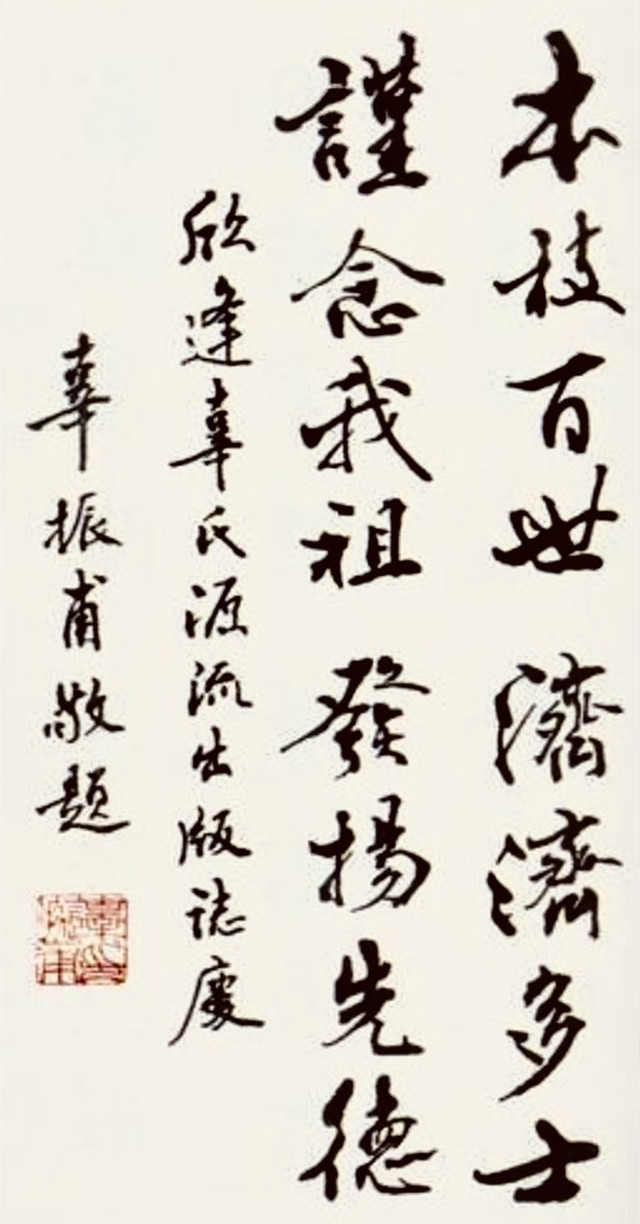 本枝百世濟濟多士
謹念我祖發揚先德
欣逢辜氏源流出版誌慶
辜振甫敬題